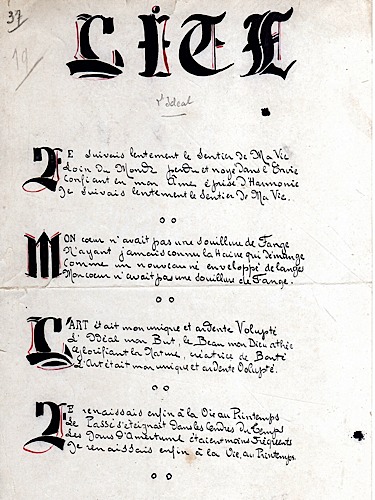 37
19
LITE
l'Idéal
JE suivais lentement le Sentier de Ma Vie
Loin du Monde perdu et noyé dans l'Envie
Confiant en mon Âme éprise d'Harmonie
Je suivais lentement le Sentier de Ma Vie.
MON cœur n'avait pas une souillure de Fange
N'ayant jamais connu la Haine qui démange
Comme un nouveau né enveloppé de langes
Mon cœur n'avait pas une souillure de Fange.
L'ART était mon unique et ardente Volupté
L'Idéal mon But, le Beau mon Dieu athée
Glorifiant la Nature, créatrice de Bonté
L'Art était mon unique et ardente Volupté.
JE renaissais enfin à la Vie au Printemps
Le Passé s'éteignait dans les Cendres du Temps
Les Jours d'Amertume étaient moins fréquents
Je renaissais enfin à la Vie, au Printemps.